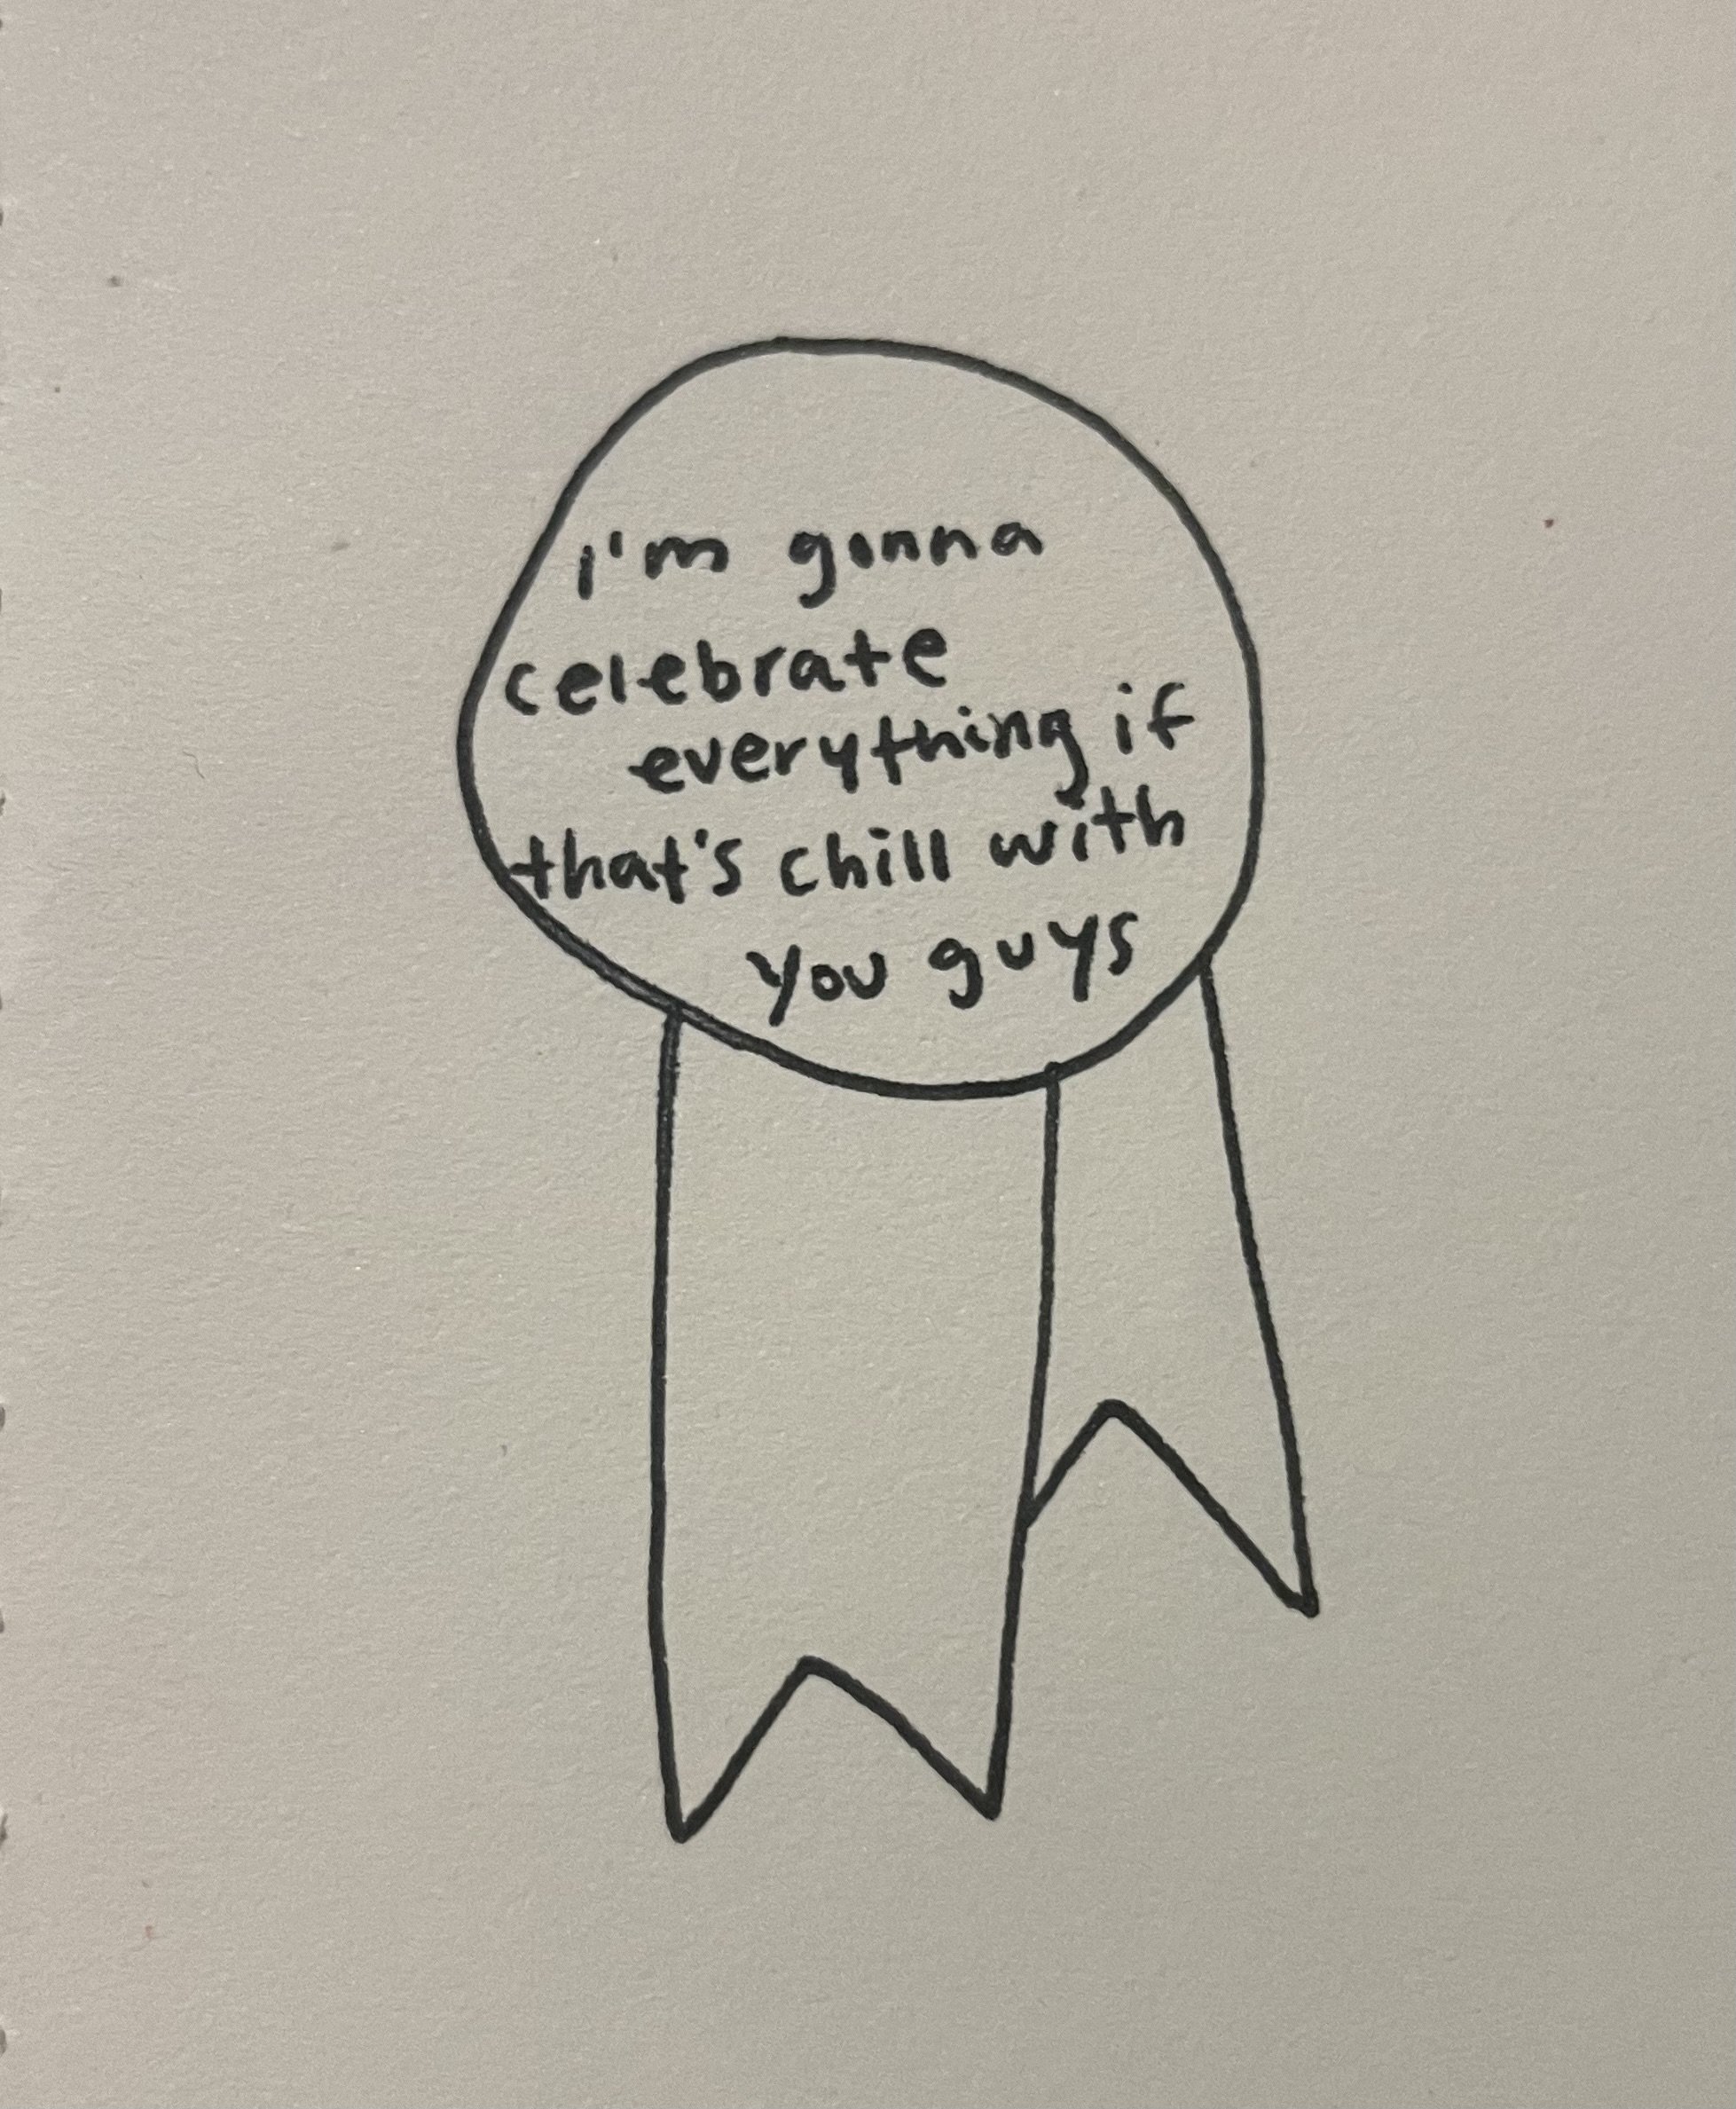 i'm gonna
celebrate
everything if
that's chill with
you guys